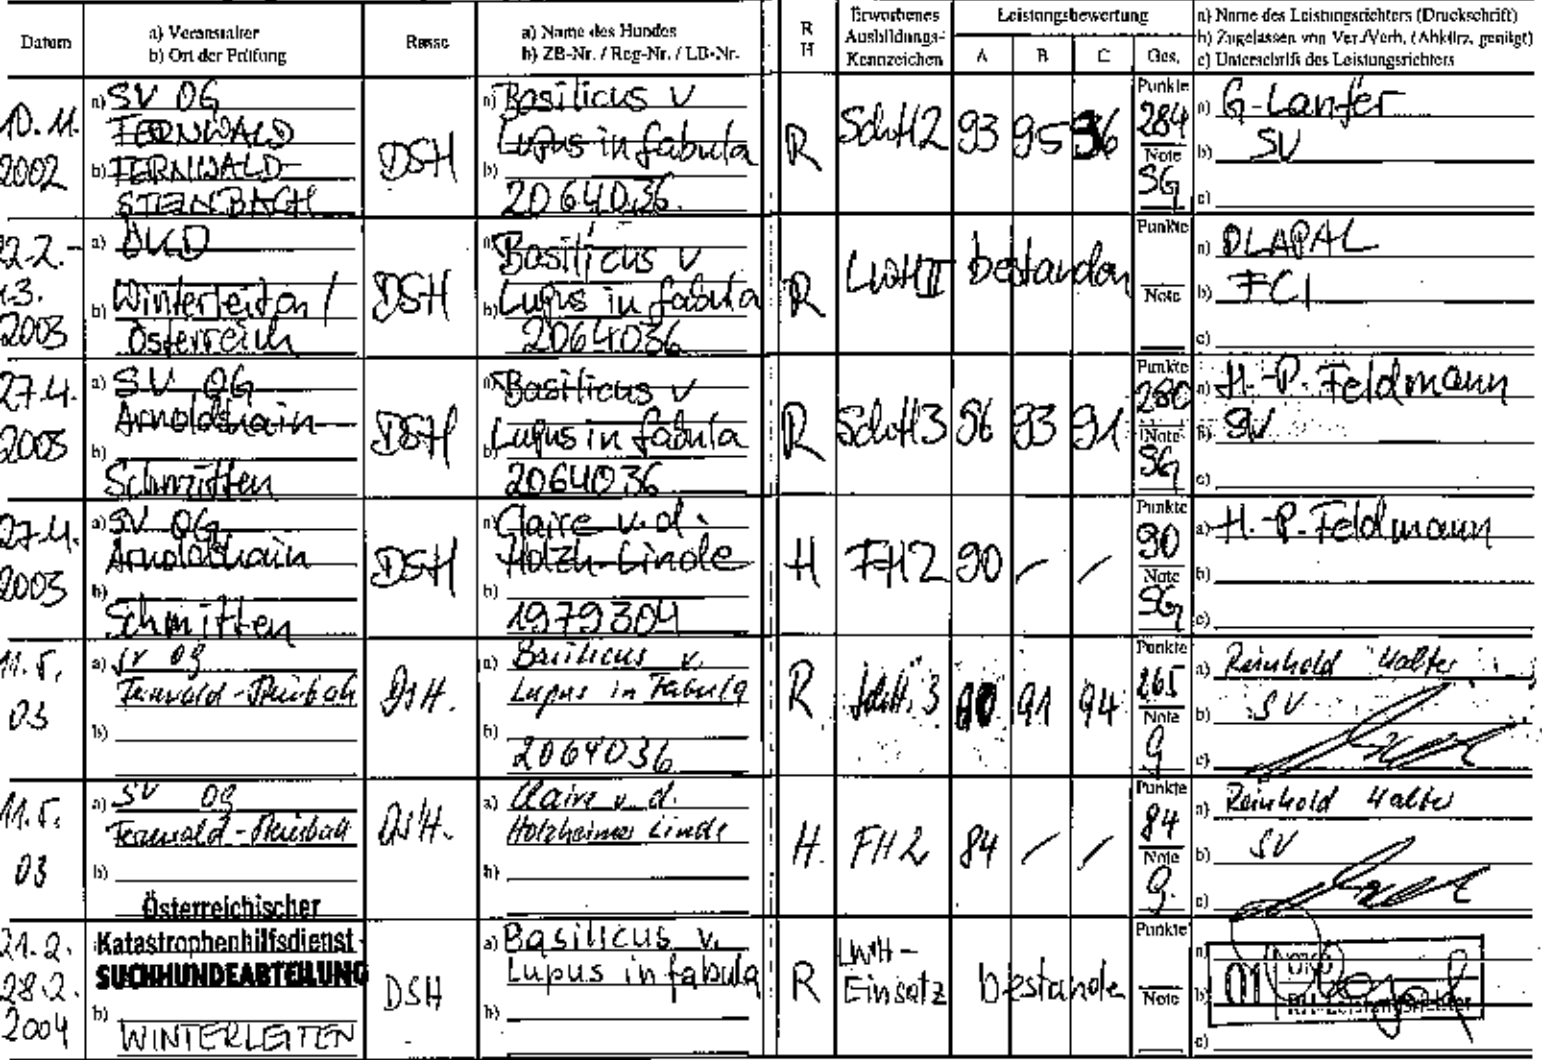 Datum
a) Veranstalter
b) Ort der Prüfung
Rasse
a) Name des Hundes
b) ZB-Nr. / Reg-Nr. / LB-Nr.
R
H
Erworbenes
Ausbildungs-
Kennzeichen
Leistungsbewertung
A B C Ges.
a) Name des Leistungsrichters (Druckschrift)
b) Zugelassen von Ver./Verb. (Abkürz. genügt)
c) Unterschrift des Leistungsrichters
10.11.
2002
a) SV OG
FERNWALD
b) FERNWALD-
STEINBACH
DSH
a) Basilicus v
Lupus in fabula
b)
2064036.
R
SchH2 93 95 96
Punkte
284
Note
SG
a) G. Laufer
b) SV
c)
22.2.-
1.3.
2003
a) ÖKD
b) Winterleiten /
Österreich
DSH
a) Basilicus v
b) Lupus in fabula
2064036
R
LWH II bestanden
Punkte
Note
a) DLAPAL
b) FCI
c)
27.4.
2003
a) SV OG
Arnoldshain
b)
Schmitten
DSH
a) Basilicus v
Lupus in fabula
b)
2064036
R
SchH3 96 93 91
Punkte
280
Note
SG
a) H.-P. Feldmann
b) SV
c)
27.4.
2003
a) SV OG
Arnoldshain
b)
Schmitten
DSH
a) Claire v.d.
Holzh-Linde
b)
1979304
H
FH2 90 / /
Punkte
90
Note
SG
a) H.-P. Feldmann
b)
c)
11.5.
03
a) SV OG
b)
DSH.
a) Basilicus v.
Lupus in Fabula
b)
2064036
R
SchH. 3 80 91 94
Punkte
265
Note
g
a) Reinhold
b) SV
c)
11.5.
03
a) SV OG
b)
DSH.
a) Claire v. d.
Holzheimer Linde
b)
H.
FH2 84 / /
Punkte
84
Note
g.
a) Reinhold
b) SV
c)
21.2.
28.2.
2004
Österreichischer
Katastrophenhilfsdienst
SUCHHUNDEABTEILUNG
b) WINTERLEITEN
DSH
a) Basilicus v.
Lupus in fabula
b)
R
LWH-
Einsatz
bestanden
Punkte
Note
a)
b) 01
c)